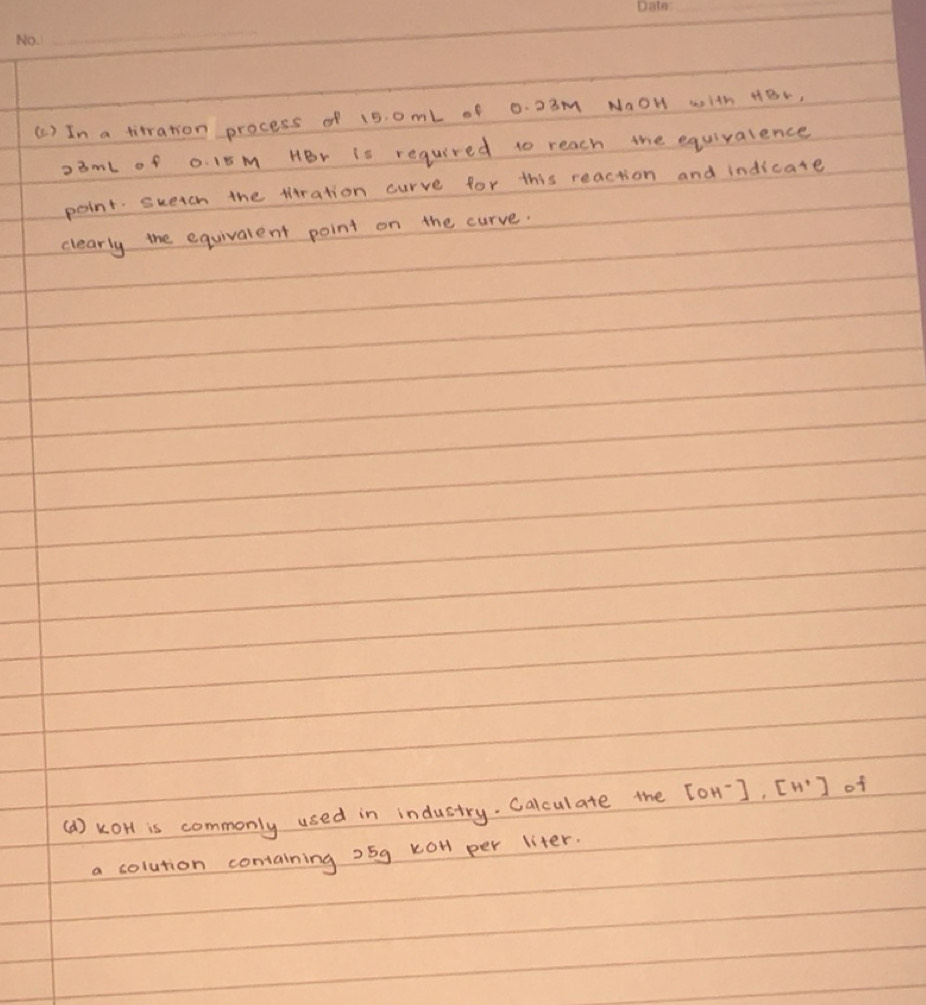 Date
No.
(c) In a titration process of 15.0mL of 0.23M NaOH with HBr,
23mL of 0.15M HBr is required to reach the equivalence
point. Sketch the titration curve for this reaction and indicate
clearly the equivalent point on the curve.
(d) KOH is commonly used in industry. Calculate the [OH⁻], [H⁺] of
a solution containing 25g KOH per liter.